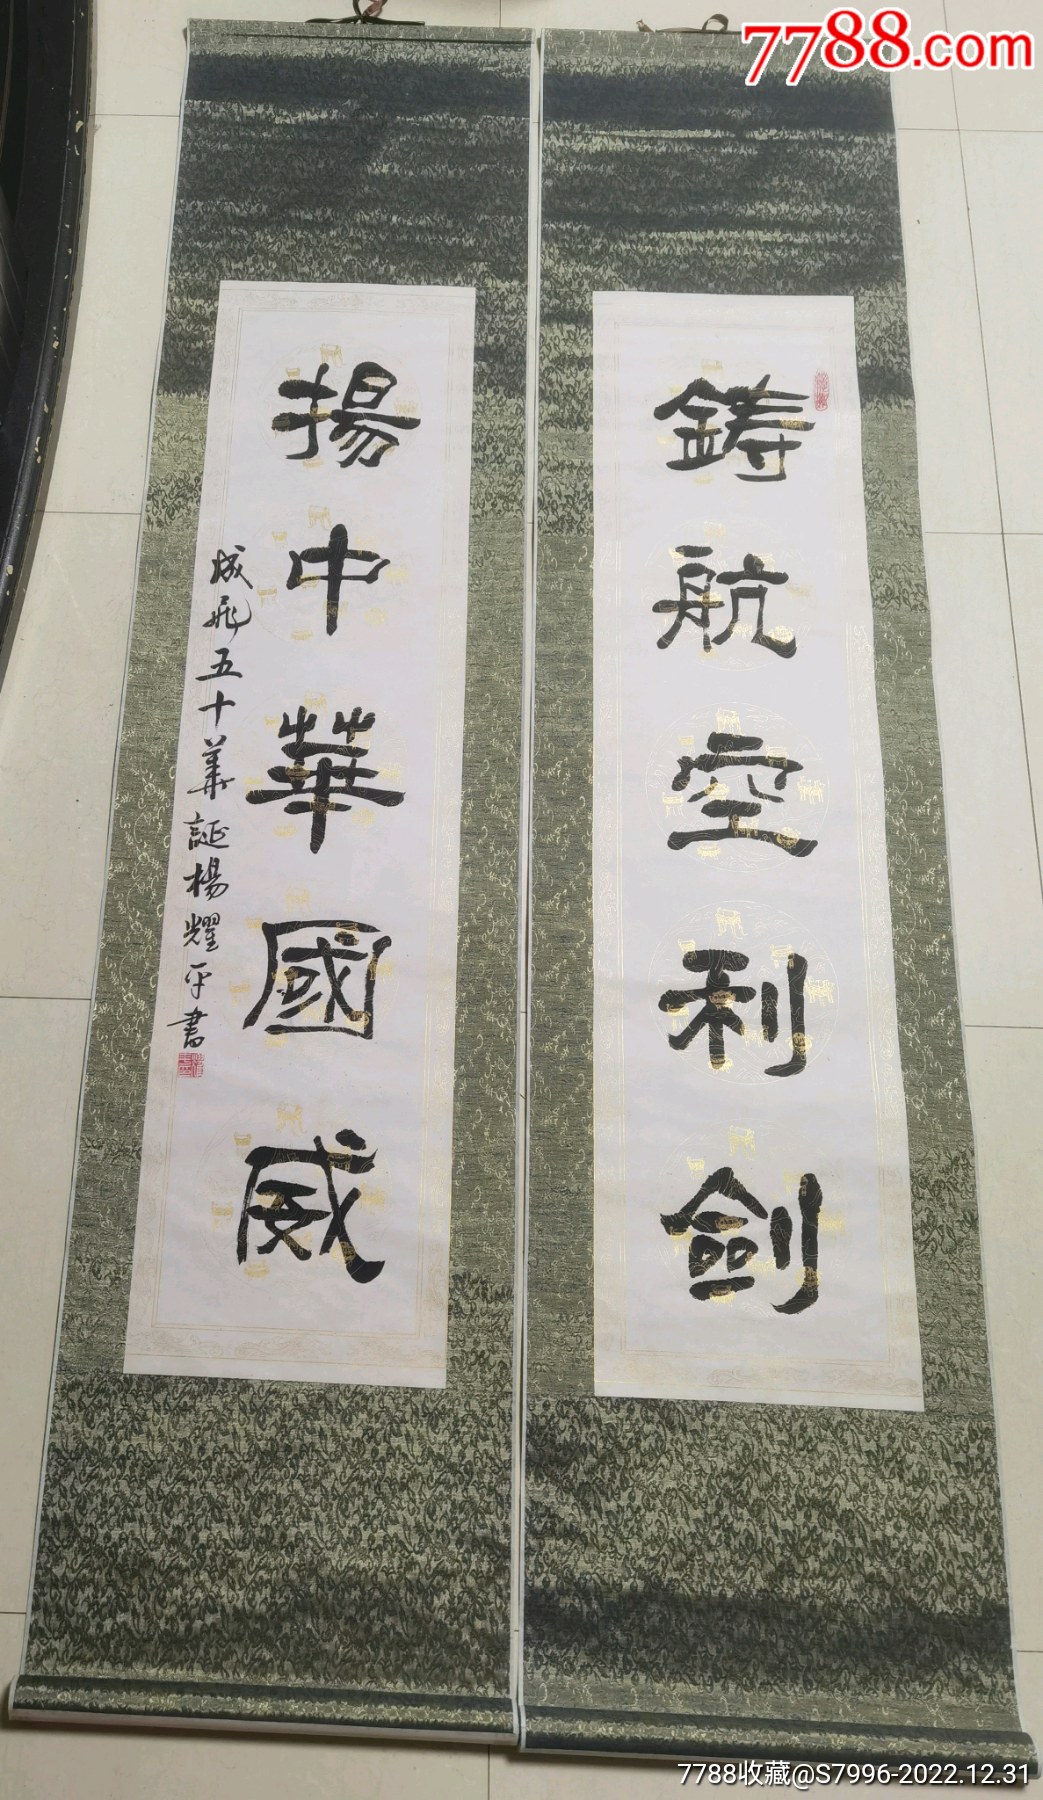 7788.com
鑄航空利劍
揚中華國威
成飛五十華誕楊耀平書
7788收藏@S7996-2022.12.31